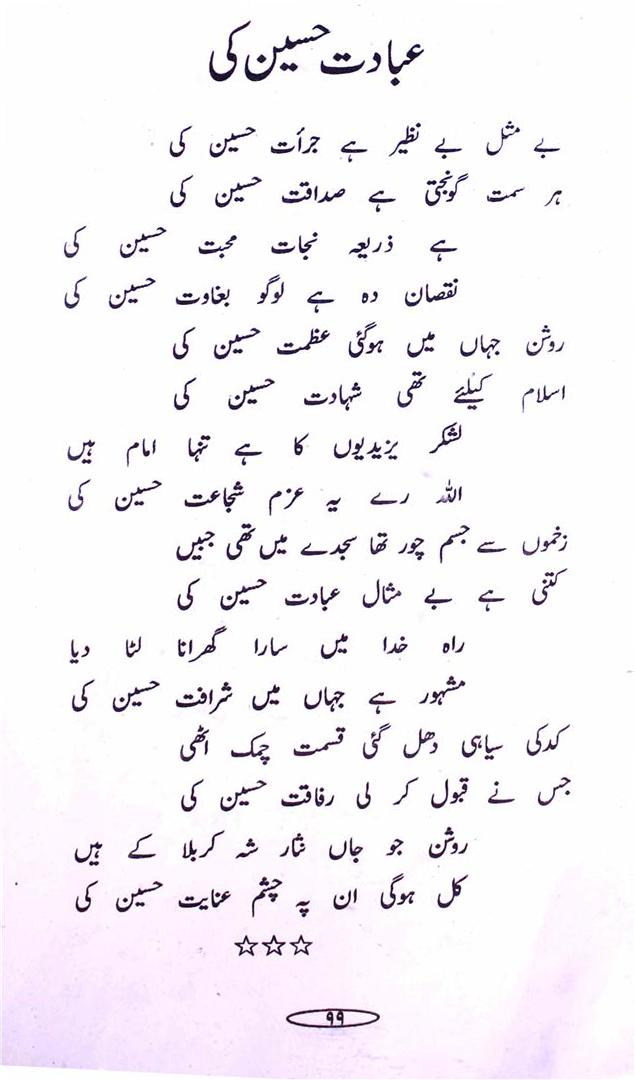 عبادت حسین کی
بے مثل بے نظیر ہے جرأت حسین کی
ہر سمت گونجتی ہے صداقت حسین کی
ہے ذریعہ نجات محبت حسین کی
نقصان دہ ہے لوگو بغاوت حسین کی
روشن جہاں میں ہوگئی عظمت حسین کی
اسلام کیلئے تھی شہادت حسین کی
لشکر یزیدیوں کا ہے تنہا امام ہیں
اللہ رے یہ عزم شجاعت حسین کی
زخموں سے جسم چور تھا سجدے میں تھی جبیں
کتنی ہے بے مثال عبادت حسین کی
راہ خدا میں سارا گھرانا لٹا دیا
مشہور ہے جہاں میں شرافت حسین کی
کدکی سیاہی دھل گئی قسمت چمک اٹھی
جس نے قبول کر لی رفاقت حسین کی
روشن جو جاں نثار شہ کربلا کے ہیں
کل ہوگی ان پہ چشم عنایت حسین کی
☆☆☆
۹۹